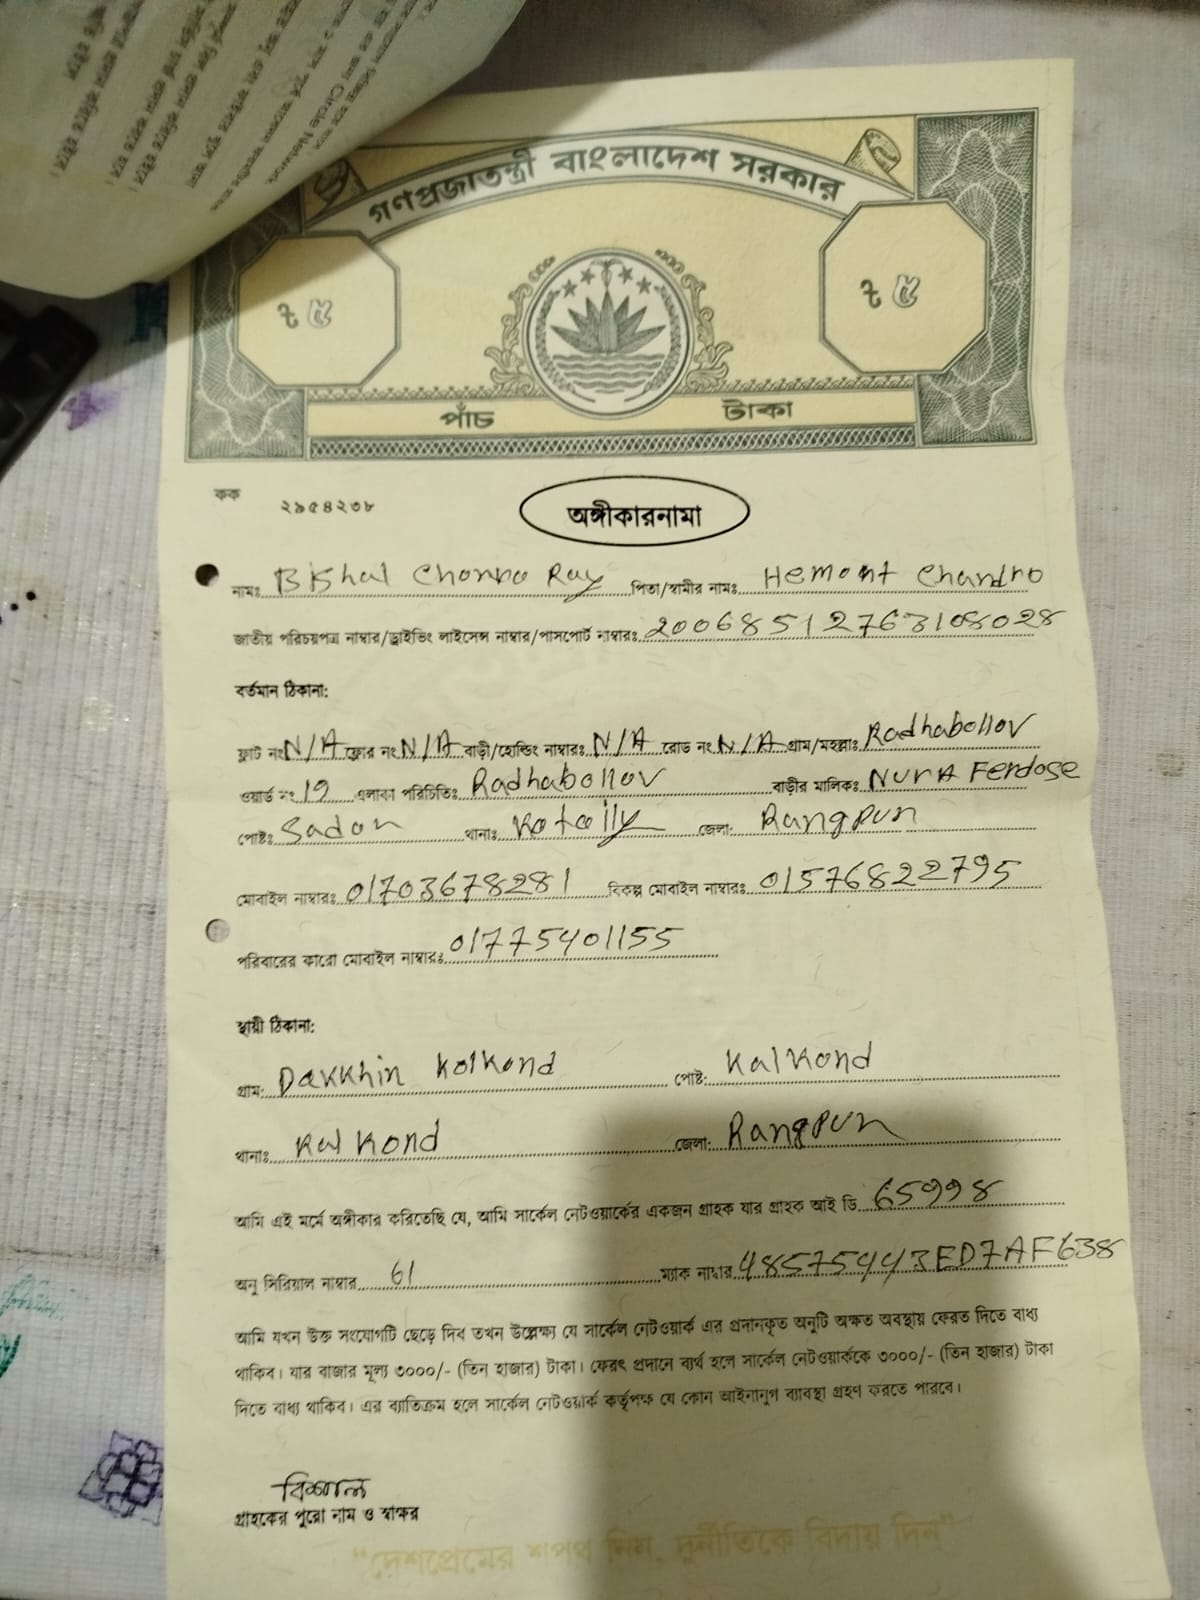 গণপ্রজাতন্ত্রী বাংলাদেশ সরকার
৳ ৫ ৳ ৫
পাঁচ টাকা
কক ২৯৫৪২৩৮
অঙ্গীকারনামা
নামঃ Bishal Chonro Ray পিতা/স্বামীর নামঃ Hemont Chandro
জাতীয় পরিচয়পত্র নাম্বার/ড্রাইভিং লাইসেন্স নাম্বার/পাসপোর্ট নাম্বারঃ 20068512763108028
বর্তমান ঠিকানা:
ফ্লাট নং N/A ফ্লোর নং N/A বাড়ী/হোল্ডিং নাম্বারঃ N/A রোড নং N/A গ্রাম/মহল্লাঃ Radhabollov
ওয়ার্ড নং 19 এলাকা পরিচিতিঃ Radhabollov বাড়ীর মালিকঃ Nura Ferdose
পোষ্টঃ Sadon থানাঃ Kotoily জেলা: Rangpun
মোবাইল নাম্বারঃ 01703678281 বিকল্প মোবাইল নাম্বারঃ 01576822795
পরিবারের কারো মোবাইল নাম্বারঃ 01775401155
স্থায়ী ঠিকানা:
গ্রাম: Dakkhin Kolkond পোষ্ট: Kalkond
থানাঃ Kalkond জেলা: Rangpun
আমি এই মর্মে অঙ্গীকার করিতেছি যে, আমি সার্কেল নেটওয়ার্কের একজন গ্রাহক যার গ্রাহক আই ডি 65998
অনু সিরিয়াল নাম্বার 61 ম্যাক নাম্বার 48575443ED7AF638
আমি যখন উক্ত সংযোগটি ছেড়ে দিব তখন উল্লেক্ষ্য যে সার্কেল নেটওয়ার্ক এর প্রদানকৃত অনুটি অক্ষত অবস্থায় ফেরত দিতে বাধ্য
থাকিব। যার বাজার মূল্য ৩০০০/- (তিন হাজার) টাকা। ফেরৎ প্রদানে ব্যর্থ হলে সার্কেল নেটওয়ার্ককে ৩০০০/- (তিন হাজার) টাকা
দিতে বাধ্য থাকিব। এর ব্যতিক্রম হলে সার্কেল নেটওয়ার্ক কর্তৃপক্ষ যে কোন আইনানুগ ব্যাবস্থা গ্রহণ করতে পারবে।
বিশাল
গ্রাহকের পুরো নাম ও স্বাক্ষর
"দেশপ্রেমের শপথ নিন, দুর্নীতিকে বিদায় দিন"